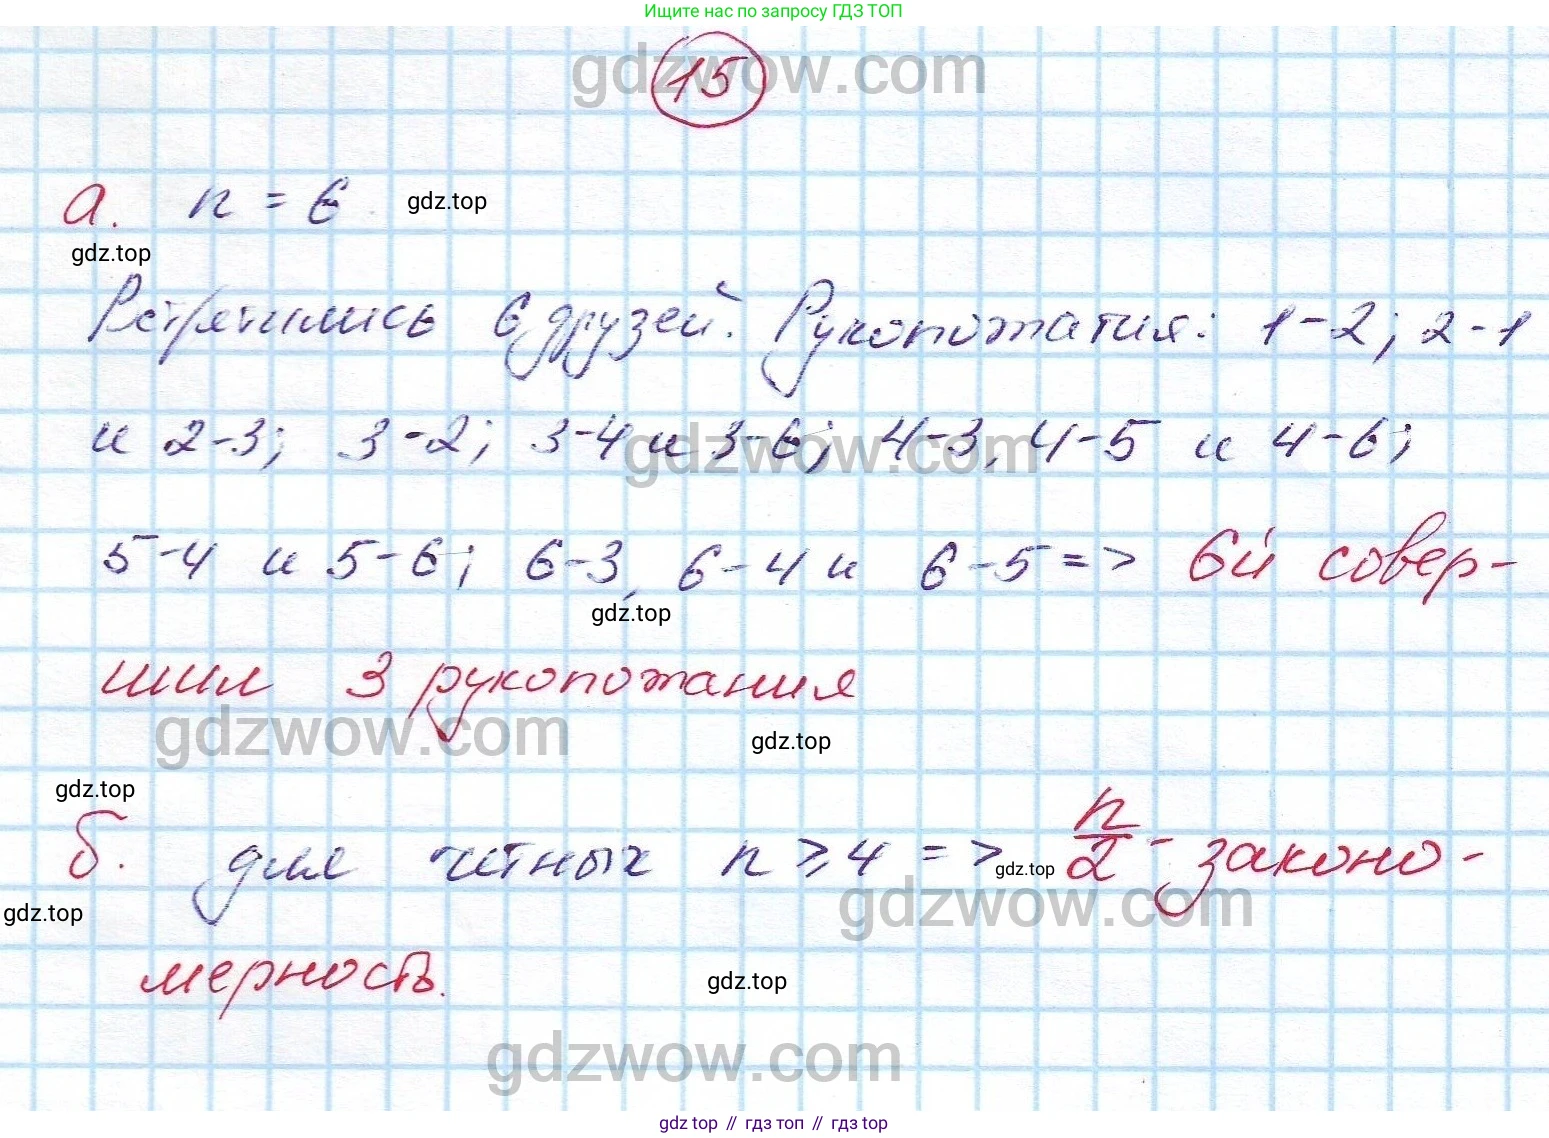 Ищите нас по запросу ГДЗ ТОП
gdzwow.com
15
а. n = 6 gdz.top
gdz.top
Встретились 6 друзей. Рукопожатия: 1-2; 2-1
и 2-3; 3-2; 3-4 и 3-6; 4-3, 4-5 и 4-6;
gdzwow.com
5-4 и 5-6; 6-3, 6-4 и 6-5 => 6й совер-
gdz.top
шил 3 рукопожания
gdzwow.com
gdz.top
gdz.top
б. для четных n ⩾ 4 => n/2 - законо-
gdz.top
gdzwow.com
gdz.top
мерность.
gdz.top
gdzwow.com
gdz.top // гдз топ // гдз.top